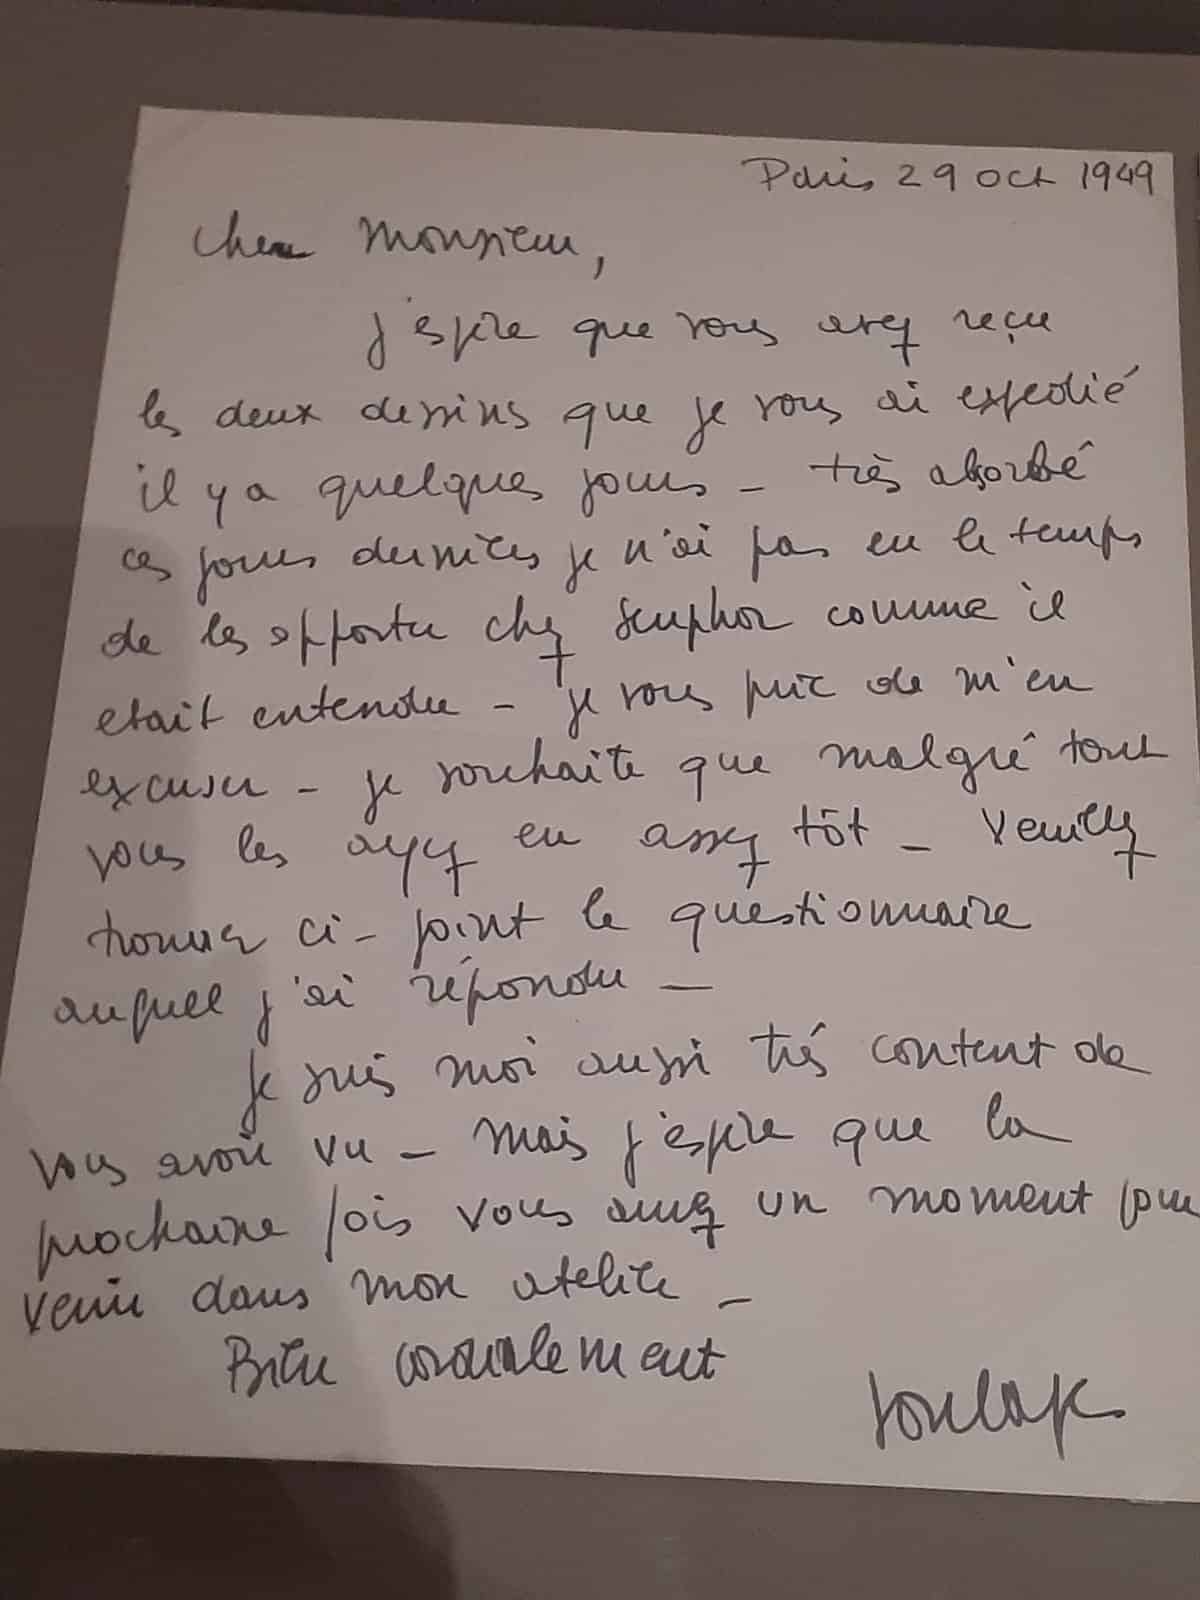 Paris 29 oct 1949
cher Monsieur,
j'espère que vous avez reçu
les deux dessins que je vous ai expedié
il y a quelques jours - très absorbé
ces jours derniers je n'ai pas eu le temps
de les apporter chez Seuphor comme il
etait entendu - je vous prie de m'en
excuser - je souhaite que malgré tout
vous les ayez eu assez tôt - Veuillez
trouver ci-joint le questionnaire
auquel j'ai répondu -
Je suis moi aussi très content de
vous avoir vu - mais j'espère que la
prochaine fois vous aurez un moment pour
venir dans mon atelier -
Bien cordialement
Soulages